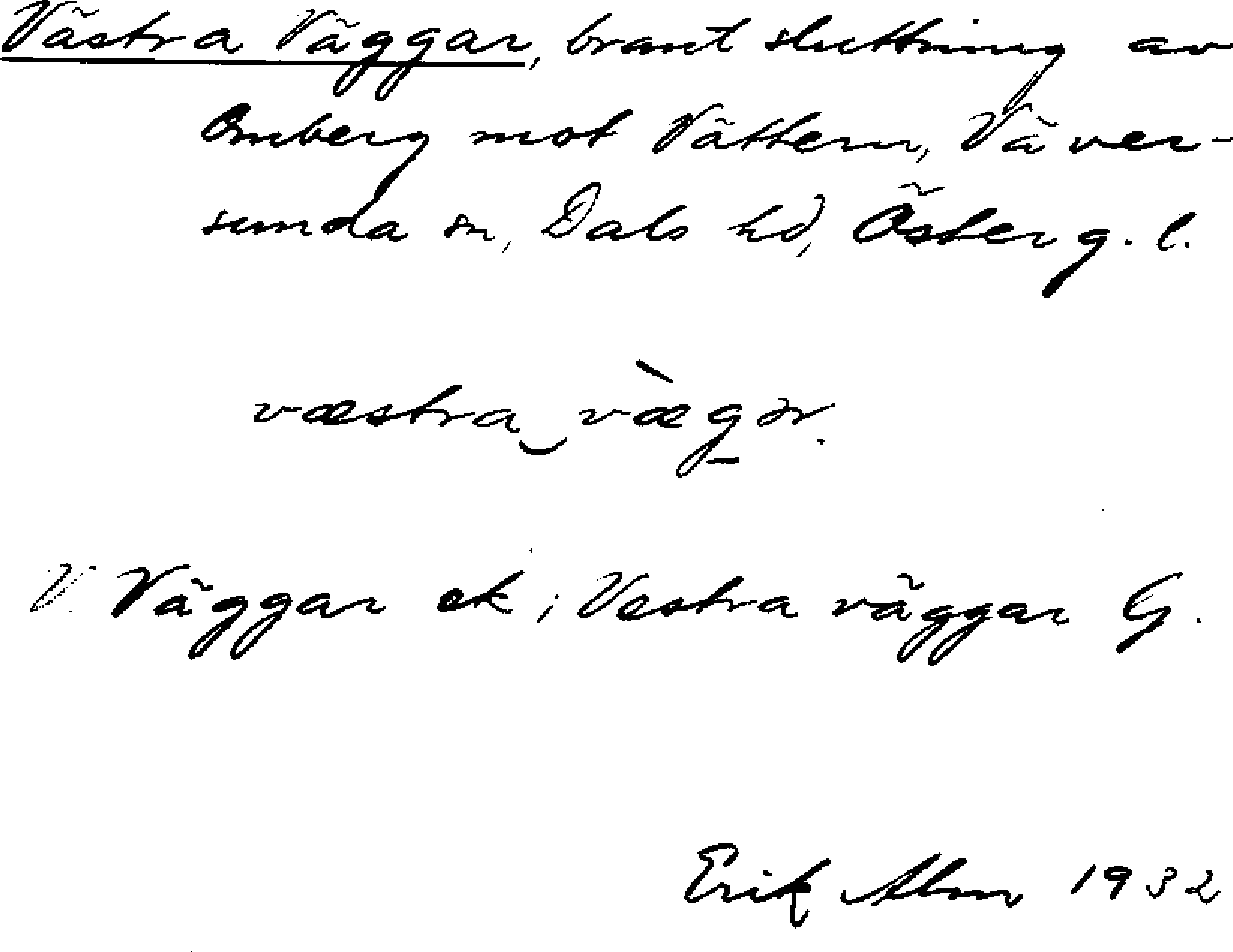 Västra Väggar, brant sluttning av
Omberg mot Vättern, Väver-
sunda sn, Dals hd, Österg. l.
væstra‿væ̀g̲ər.
V. Väggar ek; Vestra väggar G.
Erik Alm 1932